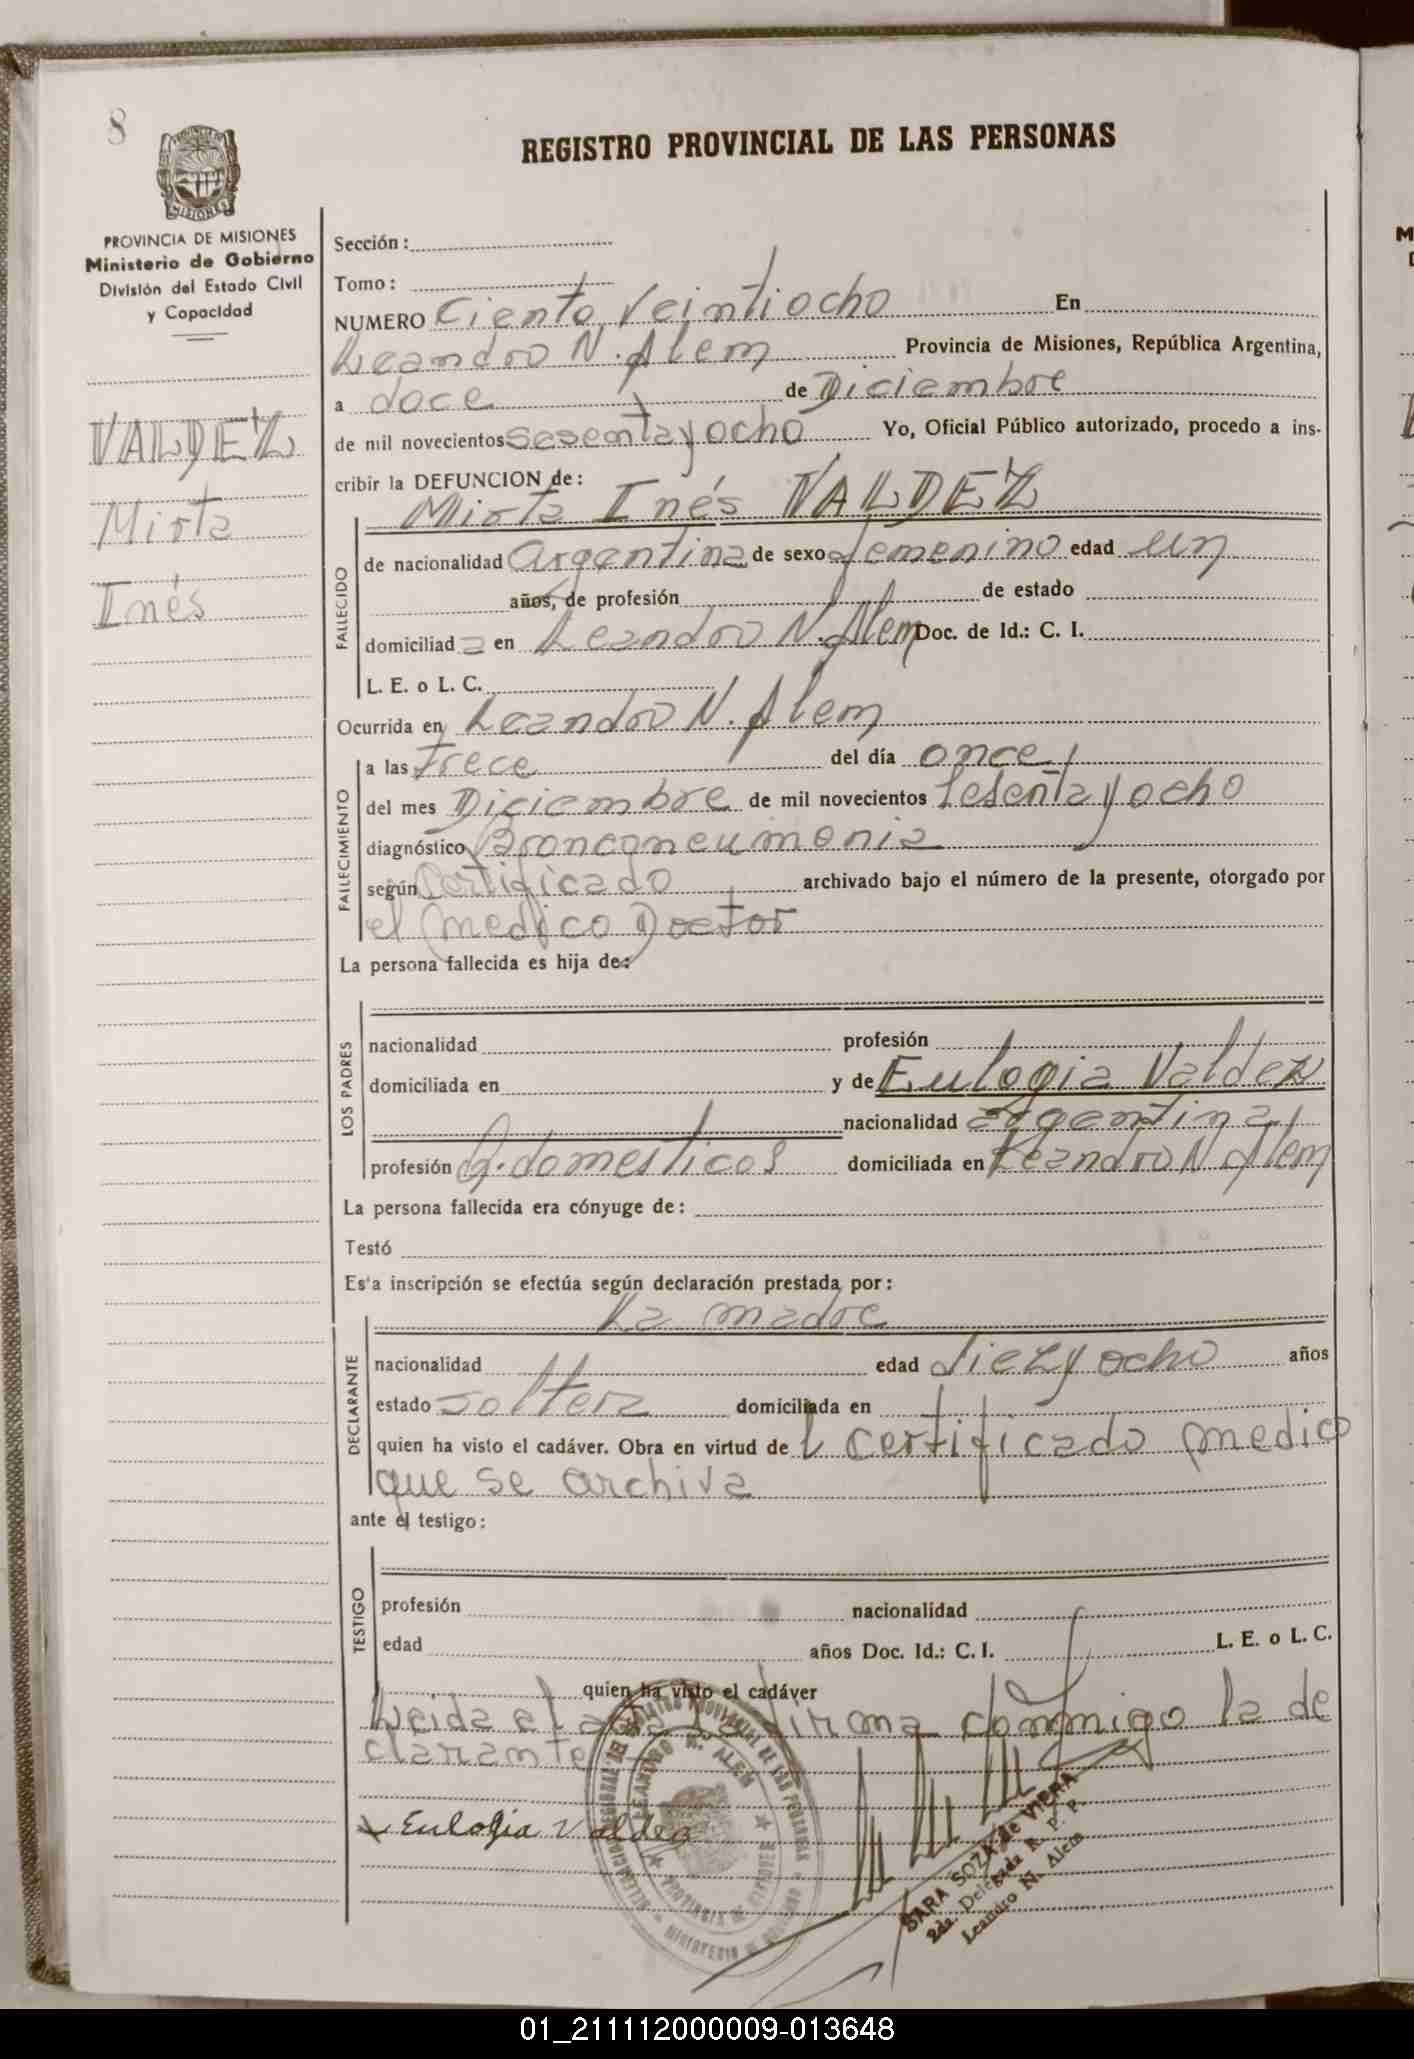 8
REGISTRO PROVINCIAL DE LAS PERSONAS
PROVINCIA DE MISIONES
Ministerio de Gobierno
División del Estado Civil
y Capacidad
VALDEZ
Mirta
Inés
Sección:
Tomo:
NUMERO Ciento Veintiocho En
Leandro N. Alem Provincia de Misiones, República Argentina,
a doce de Diciembre
de mil novecientos sesenta y ocho Yo, Oficial Público autorizado, procedo a ins-
cribir la DEFUNCION de:
Mirta Inés VALDEZ
FALLECIDO
de nacionalidad argentina de sexo femenino edad un
años, de profesión de estado
domiciliad a en Leandro N. Alem Doc. de Id.: C. I.
L. E. o L. C.
Ocurrida en Leandro N. Alem
FALLECIMIENTO
a las trece del día once
del mes Diciembre de mil novecientos sesenta y ocho
diagnóstico Bronconeumonia
según Certificado archivado bajo el número de la presente, otorgado por
el medico Doctor
La persona fallecida es hija de:
LOS PADRES
nacionalidad profesión
domiciliada en y de Eulogia Valdez
nacionalidad argentina
profesión Q. domesticos domiciliada en Leandro N Alem
La persona fallecida era cónyuge de:
Testó
Es'a inscripción se efectúa según declaración prestada por:
La madre
DECLARANTE
nacionalidad edad diez y ocho años
estado soltera domiciliada en
quien ha visto el cadáver. Obra en virtud de l certificado medico
que se archiva
ante el testigo:
TESTIGO
profesión nacionalidad
edad años Doc. Id.: C. I. L. E. o L. C.
quien ha visto el cadáver
Leida el acta la firma conmigo la de
clarante
Eulogia Valdez
SARA SOZA de VIERA
2da. Delegada R. P. P.
Leandro N. Alem
01_211112000009-013648